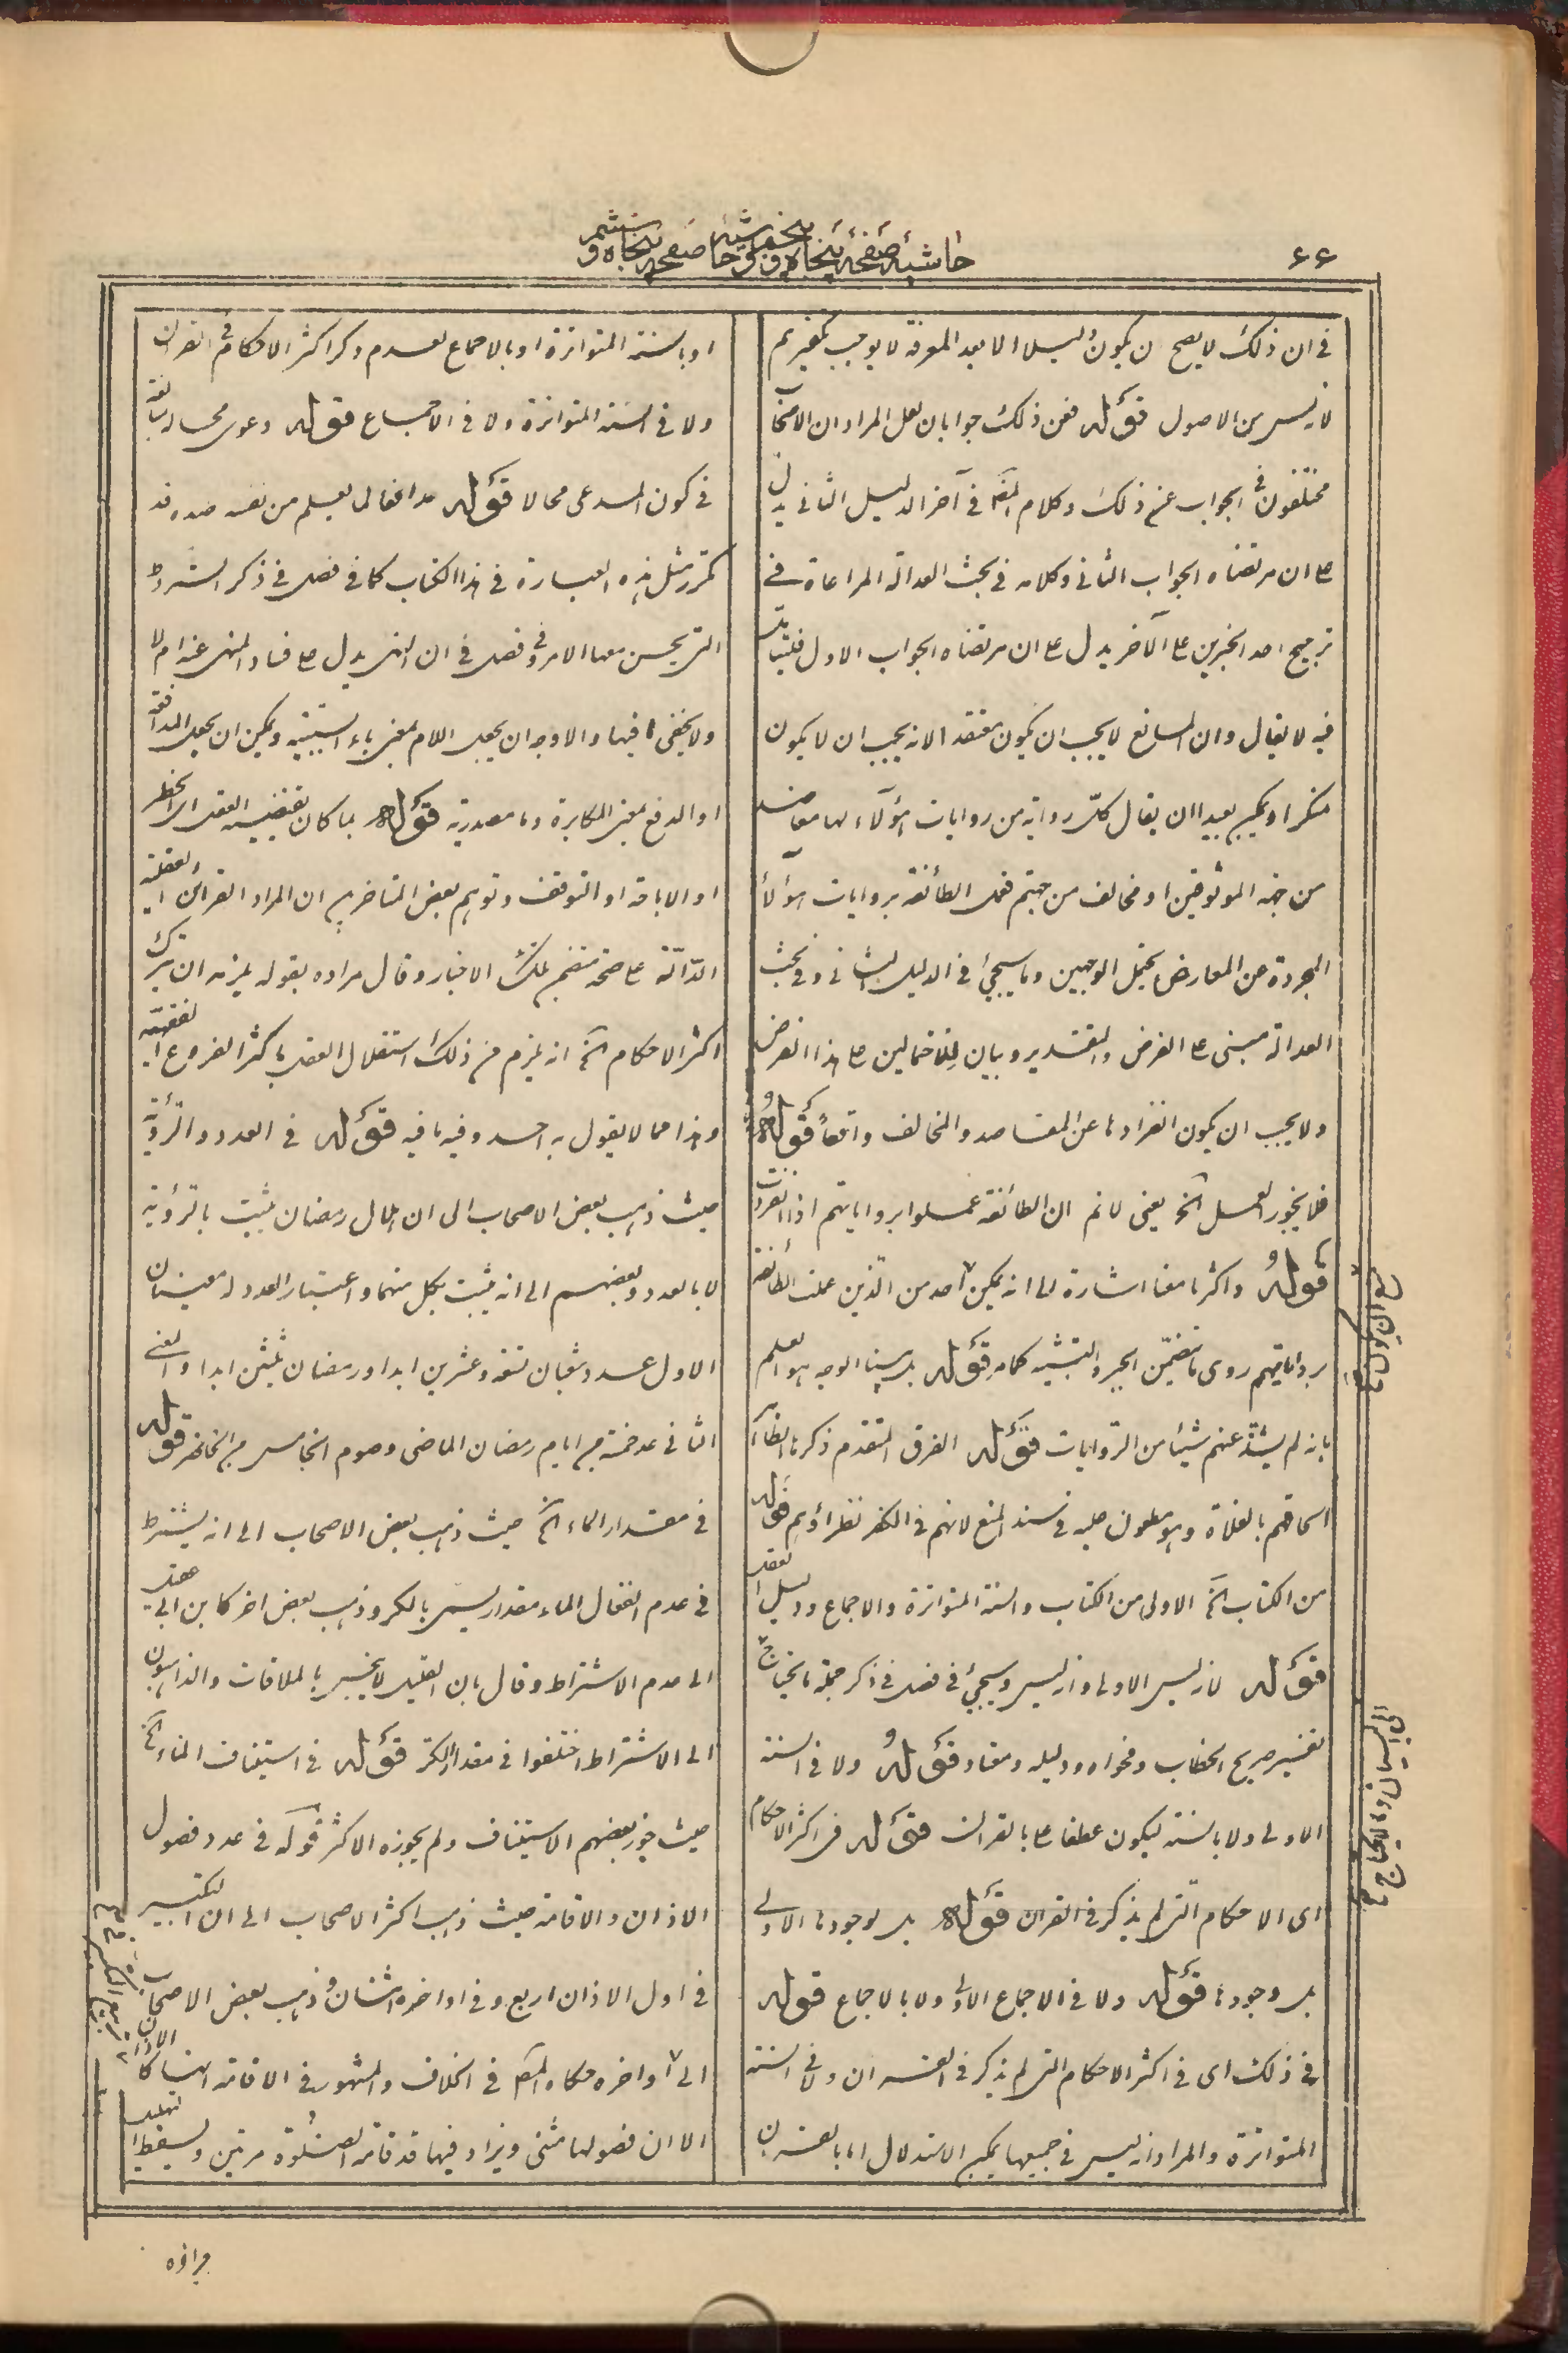 ۶۶
حاشيه صفحه پنجاه و پنجم وحاشيه صفحه پنجاه و ششم
فى ان ذلك لا يصح ان يكون دليلا الا بعد المعرفة لا يوجب تكفيرهم
لانه ليس من الاصول قوله فعن ذلك جوابان لعل المراد ان الاصحاب
مختلفون فى الجواب عن ذلك وكلام المصّ فى آخر الدليل الثانى يدل
على ان مرتضاه الجواب الثانى وكلامه فى بحث العدالة المراعاة فى
ترجيح احد الخبرين على الآخر يدل على ان مرتضاه الجواب الاول فليتأمل
فيه لا يقال وان المانع لا يجب ان يكون معتقدا لانه يجب ان لا يكون
منكرا ويمكن بعيدا ان يقال كلّ رواية من روايات هؤلاء لها معاضد
من جهة الموثوقين او مخالف من جهتهم فعمل الطائفة بروايات هؤلاء
المجردة عن المعارض يحتمل الوجهين وما سيجىء فى الدليل الثانى وفى بحث
العدالة مبنى على الفرض والتقدير وبيان للاحتمالين على هذا الفرض
ولا يجب ان يكون انفرادها عن المعاضد والمخالف واقعاً قوله
فلا يجوز العمل الخ يعنى لانم ان الطائفة عملوا برواياتهم اذا انفردت
قوله واكثرها معا اشارة الى انه يمكن احد من الّذين عملت الطائفة
برواياتهم روى ما يتضمّن الجبر والتشبيه كما مر قوله بل بينا الوجه هو العلم
بانه لم يشذّ عنهم شيئا من الروايات قوله الفرق المتقدم ذكرها الظاهر
الحاقهم بالغلاة وهو معطوف عليه فى سند المنع لانهم فى الكفر نظراؤهم قوله
من الكتاب الخ الاولى من الكتاب والسنة المتواترة والاجماع ودليل العقل
قوله لانه ليس الاولى وانه ليس وسيجىء فى فصل فى ذكر جملة ما يحتاج
تفسير صريح الخطاب وفحواه ودليله ومعناه قوله ولا فى السنة
الاولى ولا بالسنة ليكون عطفا على بالقرآن قوله فى اكثر الاحكام
اى الاحكام الّتى لم يذكر فى القرآن قوله بل لوجودها الاولى
بل وجودها قوله ولا فى الاجماع الاولى ولا بالاجماع قوله
فى ذلك اى فى اكثر الاحكام التى لم يذكر فى القرآن ولا فى السنة
المتواترة والمراد انه ليس فى جميعها يمكن الاستدلال اما بالقرآن
او بالسنة المتواترة او بالاجماع لعدم ذكر اكثر الاحكام فى القرآن
ولا فى السنة المتواترة ولا فى الاجماع قوله دعوى محالة مبالغة
فى كون المدعى محالا قوله مدافعا لما يعلم من نفسه ضده قد
تكرر مثل هذه العبارة فى هذا الكتاب كما فى فصل فى ذكر الشروط
التى يحسن معها الامر وفى فصل فى ان النهى يدل على فساد المنهى عنه ام لا
ولا يخفى ما فيها والاوجه ان يجعل اللام بمعنى باء السببية ويمكن ان يجعل المدافعة
او الدفع بمعنى المكابرة وما مصدرية قوله بما كان يقتضيه العقل اى الحظر
او الاباحة او التوقف وتوهم بعض المتاخرين ان المراد القرائن العقلية
الدّالّة على صحة متضمن تلك الاخبار وقال مراده بقوله يلزمه ان يترك
اكثر الاحكام الخ انه يلزم من ذلك استقلال العقل باكثر الفروع الفقهية
وهذا مما لا يقول به احد وفيه ما فيه قوله فى العدد والرّؤية
حيث ذهب بعض الاصحاب الى ان هلال رمضان يثبت بالرؤية
لا بالعدد وبعضهم الى انه يثبت بكل منهما واعتبار العدد له معنيان
الاول عدد شعبان تسعة وعشرين ابدا ورمضان ثلثين ابدا والمعنى
الثانى عد خمسة من ايام رمضان الماضى وصوم الخامس من الحاضر قوله
فى مقدار الماء الخ حيث ذهب بعض الاصحاب الى انه يشترط
فى عدم انفعال الماء مقدار يسمى بالكر وذهب بعض اخر كابن ابى عقيل
الى عدم الاشتراط وقال بان القليل لا ينجس بالملاقات والذاهبون
الى الاشتراط اختلفوا فى مقدار الكر قوله فى استيناف الماء الخ
حيث جوز بعضهم الاستيناف ولم يجوزه الاكثر قوله فى عدد فصول
الاذان والاقامة حيث ذهب اكثر الاصحاب الى ان التكبير
فى اول الاذان اربع وفى اواخره اثنتان وذهب بعض الاصحاب
الى اواخره حكاه المصّ فى الخلاف والمشهور فى الاقامة انها كالاذان
الا ان فصولها مثنى ويزاد فيها قد قامت الصّلوة مرتين ويسقط التهليل
مرة